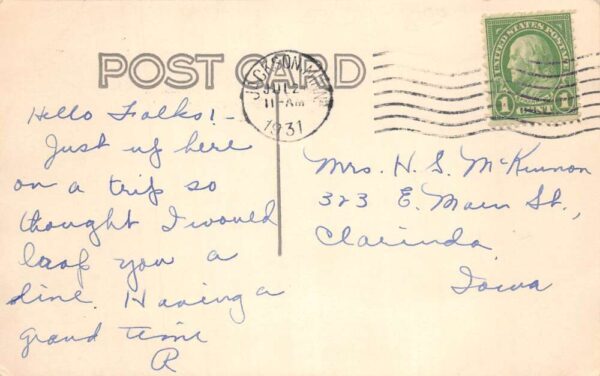 POST CARD
JACKSON, MINN.
JUL 2
11-AM
1931
UNITED STATES POSTAGE
1 CENT 1
Hello Folks! -
Just up here
on a trip so
thought I would
drop you a
line. Having a
grand time
R
Mrs. H. S. McKinnon
323 E. Main St.,
Clarinda,
Iowa